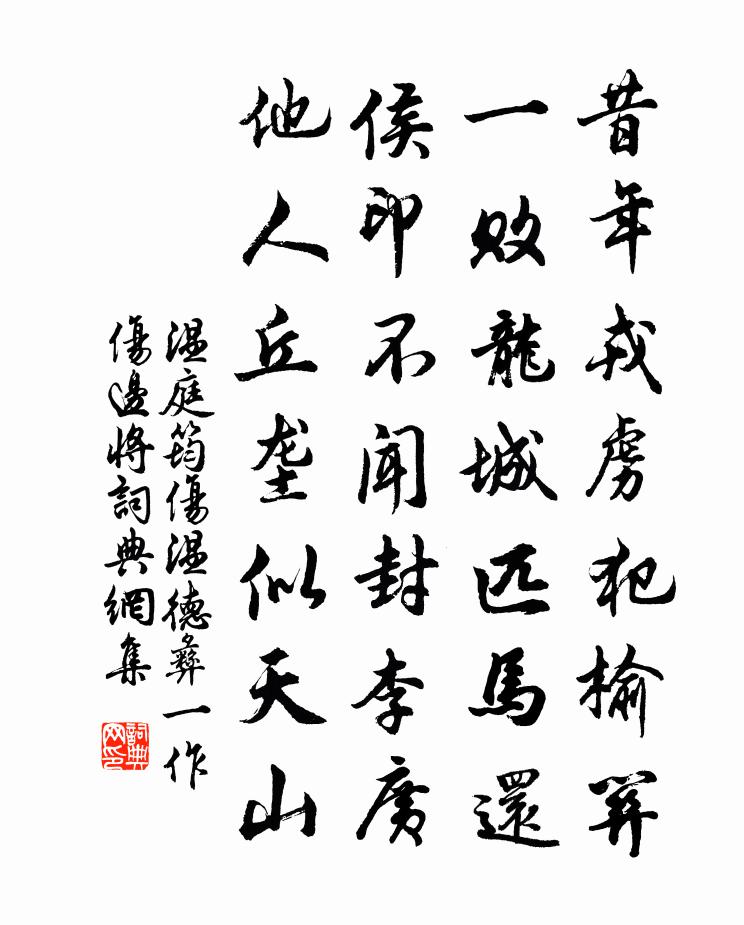 昔年戎虜犯榆關
一敗龍城匹馬還
侯印不聞封李廣
他人丘垄似天山
温庭筠傷温德彝一作
傷邊將詞典網集
詞典网印